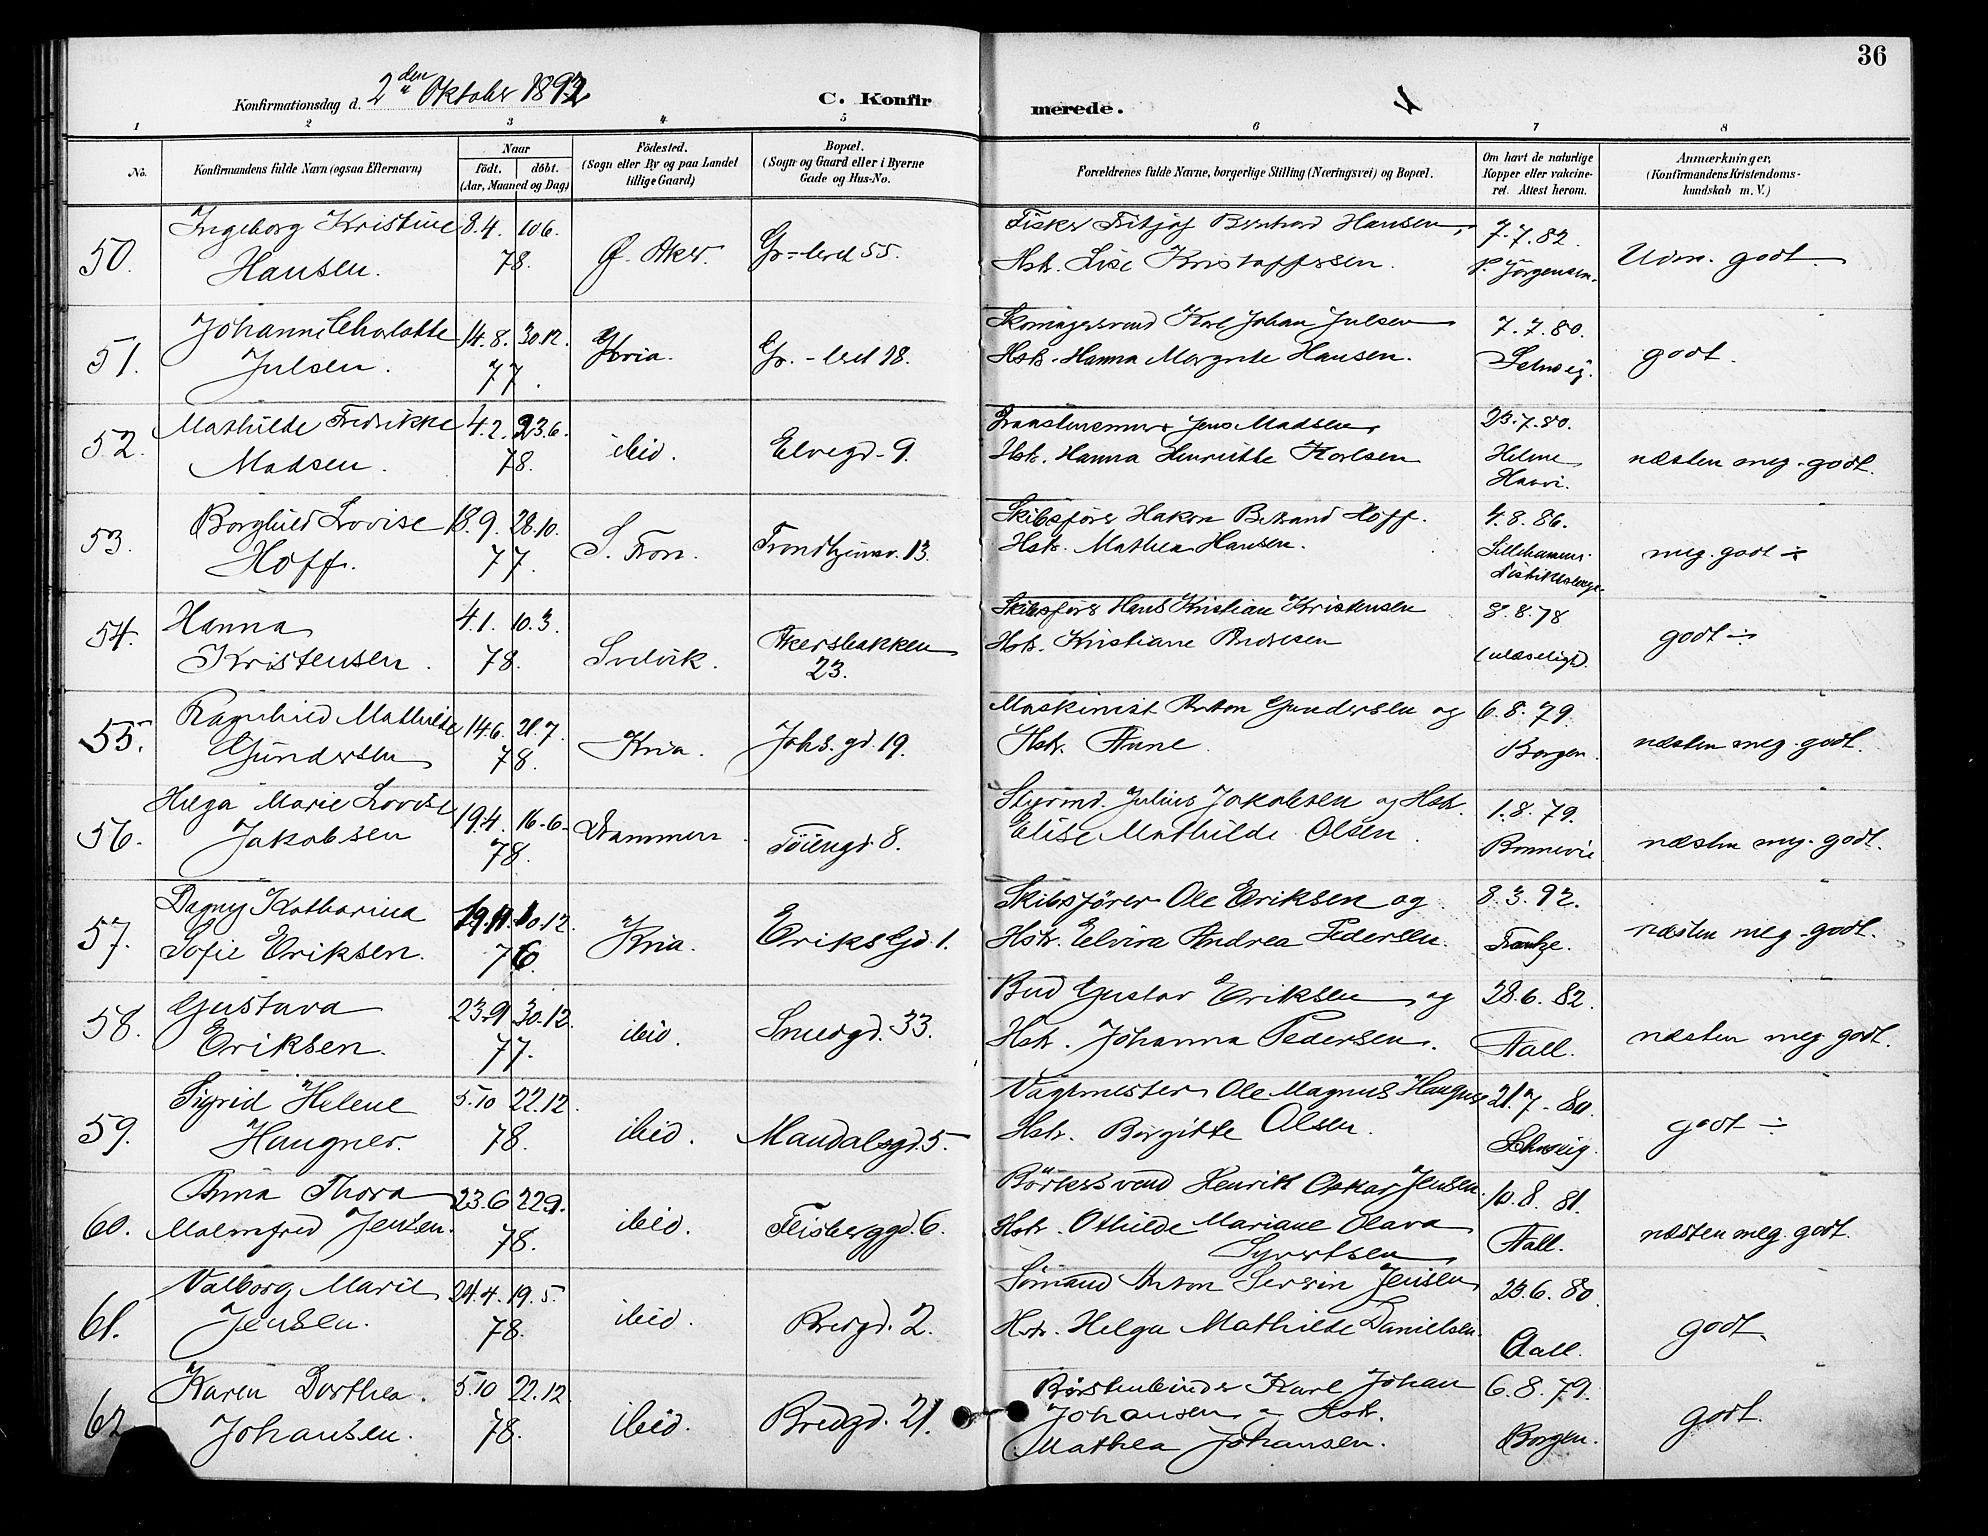 36
Konfirmationsdag d. 2den Oktober 1892
C. Konfirmerede.
1 2 3 4 5 6 7 8
No.
Konfirmandens fulde Navn (ogsaa Efternavn)
Naar
födt. döbt.
(Aar, Maaned og Dag)
Födested.
(Sogn eller By og paa Landet
tillige Gaard)
Bopæl.
(Sogn og Gaard eller i Byerne
Gade og Hus-No.
Forældrenes fulde Navne, borgerlige Stilling (Næringsvei) og Bopæl.
Om havt de naturlige
Kopper eller vakcine-
ret. Attest herom.
Anmærkninger.
(Konfirmandens Kristendoms-
kundskab m. V.)
50. Ingeborg Kristine Hansen. 8.4. 10.6. 78. Ø. Aker. Gr=leret 55. Fisker Fritjof Bernhard Hansen, Hstr. Lise Kristoffersen. 7.7.82. P. Jörgensen. Udm. godt.
51. Johanne Charlotte Julsen. 14.8. 30.12. 77. Kria. Gr.-leret 18. Skomagersvend Karl Johan Julsen Hstr. Hanna Margrete Hansen. 7.7.80. Schweig. godt.
52. Mathilde Fredrikke Madsen. 4.2. 23.6. 78. ibid. Elvegd. 9. Jens Madsen, Hstr. Hanna Henriette Karlsen 23.7.80. Helene næsten meg. godt.
53. Borghild Lovise Hoff. 18.9. 28.10. 77. S. Fron. Trondhjemsv. 13. Skibsförer Hakon Hoff. Hstr. Mathea Hansen. 4.8.86. meg. godt ÷
54. Hanna Kristensen. 4.1. 10.3. 78. Svelvik. Akersbakken 23. Skibsförer Hans Kristian Kristensen Hstr. Kristiane Andresen 8.8.78 (ulæseligt). godt ÷
55. Ragnhild Mathilde Gundersen 14.6. 21.7. 78. Kria. Johs. gd. 19. Maskinist Anton Gundersen og Hstr. Anne. 6.8.79. Borgen næsten meg. godt.
56. Helga Marie Lovise Jakobsen 19.4. 16.6. 78. Drammen. Töiengd. 8. Styrmd. Julius Jakobsen og Hstr. Elise Mathilde Olsen. 1.8.79. Bonnevie næsten meg. godt.
57. Dagny Katharina Sofie Eriksen. 19.11. 10.12. 76. Kria. Eriks Gd. 1. Skibsförer Ole Eriksen og Hstr. Elvira Andrea Pedersen. 8.3.92. næsten meg. godt.
58. Gustava Eriksen. 23.9 30.12. 77. ibid. Smedgd. 33. Bud Gustav Eriksen og Hstr. Johanna Pedersen. 28.6.82. Aall. næsten meg godt.
59. Sigrid Helene Haugner. 5.10 22.12. 78. ibid. Mandalsgd. 5. Vagtmester Ole Magnus Haugner Hstr. Birgitte Olsen. 21.7.80. Schweig. godt ÷
60. Anna Thora Malmfred Jensen. 23.6 22.9. 78. ibid. Heisberggd. 6. Henrik Oskar Jensen. Hstr. Othilde Mariane Olava Syvertsen 10.8.81. Aall. næsten meg. godt.
61. Valborg Marie Jensen. 24.4. 19.5. 78. ibid. Bredgd. 2. Sömand Anton Jensen, Hstr. Helga Mathilde Danielsen. 23.6.80. Aall. godt
62 Karen Dorthea Johansen. 5.10 22.12. 78. ibid. Bredgd. 21. Börstenbinder Karl Johan Johansen Hstr. Mathea Johansen. 6.8.79. Borgen. godt.